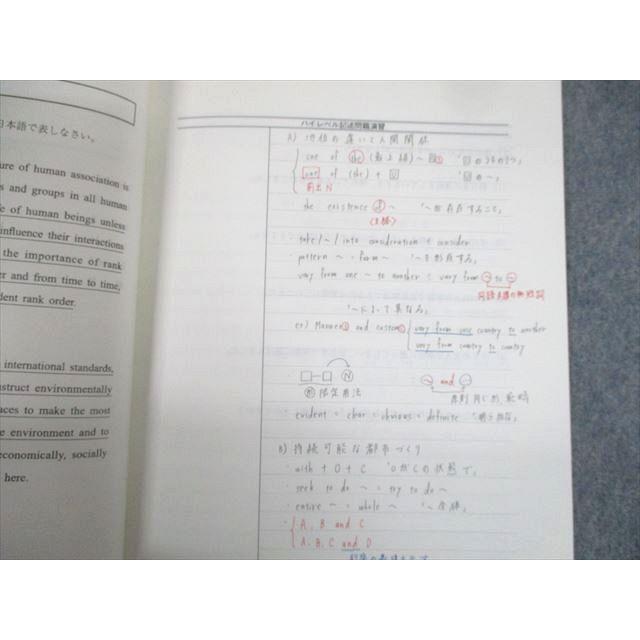 日本語で表しなさい。
ure of human association is
s and groups in all human
e of human beings unless
influence their interactions
the importance of rank
er and from time to time,
dent rank order.
international standards,
struct environmentally
ces to make the most
e environment and to
economically, socially
here.
ハイレベル記述問題演習
A) 地位の違いと人間関係
one of the (最上級) ~ 図S 「図のうちの1つ」
one of (the) + 図 「図の~」
前出N
the existence of ~ 「~が存在すること」
(主格)
take / ~ / into consideration = consider
・pattern ~ = form ~ 「~を形成する」
vary from one ~ to another = vary from ~ to ~
「~によって異なる」
ex) Manners and customs vary from one country to another
vary from country to country
~ and ~
限定用法
・evident = clear = obvious = definite 「明らかな」
B) 持続可能な都市づくり
・with + O + C 「OがCの状態で」
・seek to do ~ = try to do ~
・entire ~ = whole ~ 「~全体」
A, B and C
A, B, C and D